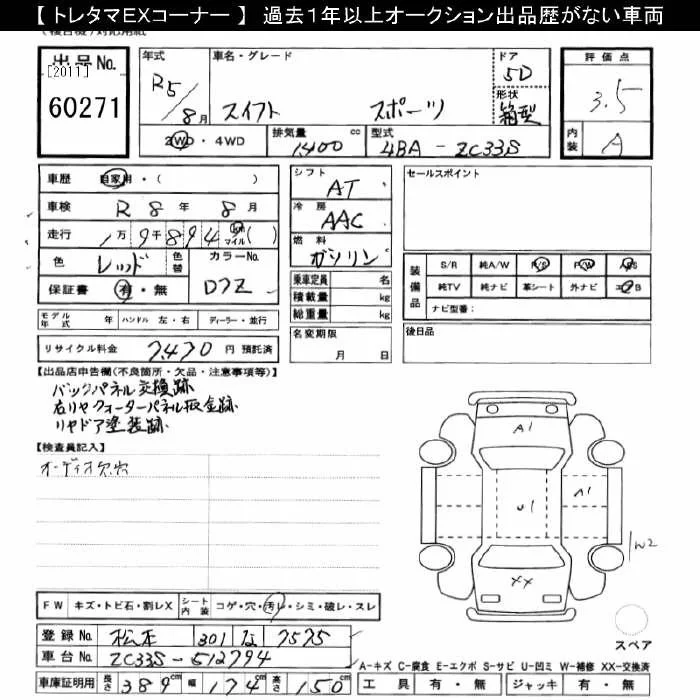 【 トレタマEXコーナー 】 過去1年以上オークション出品歴がない車両
出品No.
[2011]
60271
年式
R5/8月
車名・グレード
スイフト スポーツ
ドア
5D
形状
箱型
評価点
3.5
内装
A
2WD・4WD
排気量
1400 cc
型式
4BA-ZC33S
車歴 自家用・( )
車検 R8年 8月
走行 1万9千894 km マイル ( )
色 レッド 色替
カラーNo. D7Z
保証書 有・無
シフト AT
冷房 AAC
燃料 ガソリン
乗車定員 名
積載量 kg
総重量 kg
名変期限
月 日
セールスポイント
装備品
S/R 純A/W P/S P/W A/S
純TV 純ナビ 革シート 外ナビ エアB
ナビ型番:
後日品
モデル年式 年 ハンドル 左・右 ディーラー・並行
リサイクル料金 7,470 円 預託済
【出品店申告欄(不良箇所・欠品・注意事項等)】
バックパネル交換跡
右リヤクォーターパネル板金跡
リヤドア塗装跡
【検査員記入】
オーディオ欠穴
A1
U1
A1
W2
XX
スペア
FW キズ・トビ石・割レX
シート内装 コゲ・穴・汚レ・シミ・破レ・スレ
登録No. 松本 301 な 7575
車台No. ZC33S-512794
車庫証明用 長さ 389cm 幅 174cm 高さ 150cm
A-キズ C-腐食 E-エクボ S-サビ U-凹ミ W-補修 XX-交換済
工具 有・無 ジャッキ 有・無